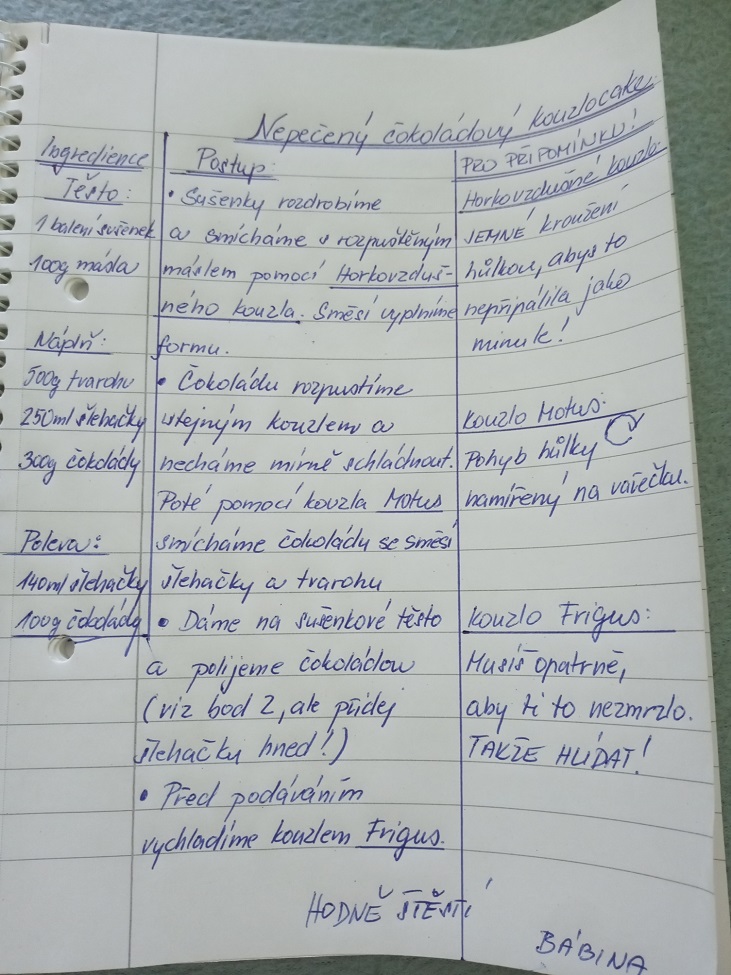 Nepečený čokoládový kouzlocake:
Ingredience
Těsto:
1 balení sušenek
100g másla
Náplň:
500g tvarohu
250ml šlehačky
300g čokolády
Poleva:
140ml šlehačky
100g čokolády
Postup:
• Sušenky rozdrobíme
a smícháme s rozpuštěným
máslem pomocí Horkovzduš-
ného kouzla. Směsí vyplníme
formu.
• Čokoládu rozpustíme
stejným kouzlem a
necháme mírně schládnout.
Poté pomocí kouzla Motus
smícháme čokolády se směsí
šlehačky a tvarohu
• Dáme na sušenkové těsto
a polijeme čokoládou
(viz bod 2, ale přidej
šlehačky hned!)
• Před podáváním
vychladíme kouzlem Frigus.
PRO PŘIPOMÍNKU!
Horkovzdušné kouzlo:
JEMNÉ kroužení
hůlkou, abys to
nepřipálila jako
minule!
Kouzlo Motus:
Pohyb hůlky
namířený na vařečku.
Kouzlo Frigus:
Musíš opatrně,
aby ti to nezmrzlo.
TAKŽE HLÍDAT!
HODNĚ ŠTĚSTÍ
BÁBINA